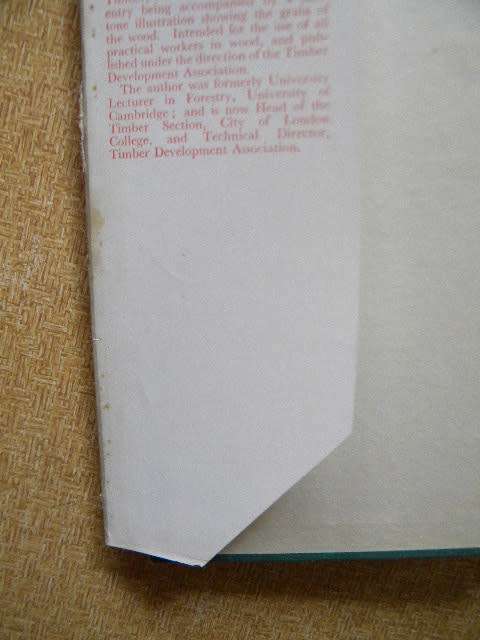 entry being accompanied by
tone illustration showing the grain of
the wood. Intended for the use of all
practical workers in wood, and pub-
lished under the direction of the Timber
Development Association.
The author was formerly University
Lecturer in Forestry, University of
Cambridge; and is now Head of the
Timber Section, City of London
College, and Technical Director,
Timber Development Association.